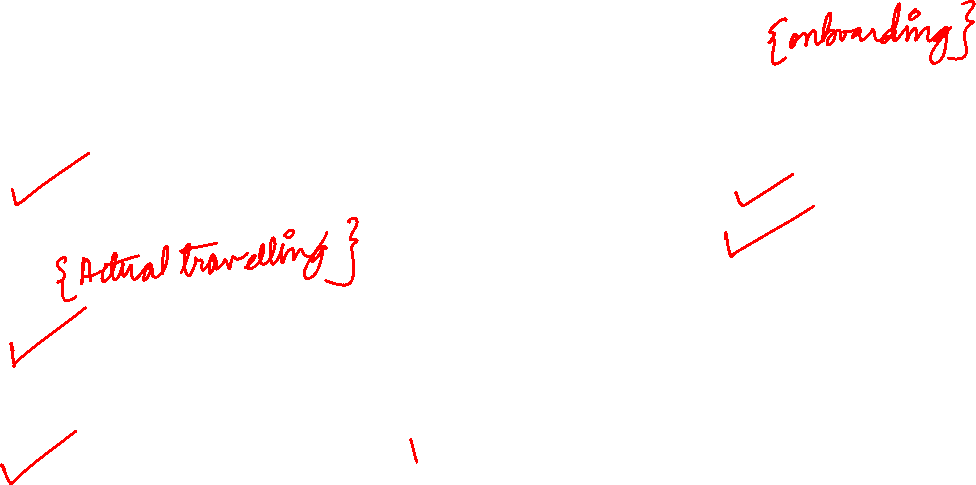 {onboarding}
{Actual travelling}